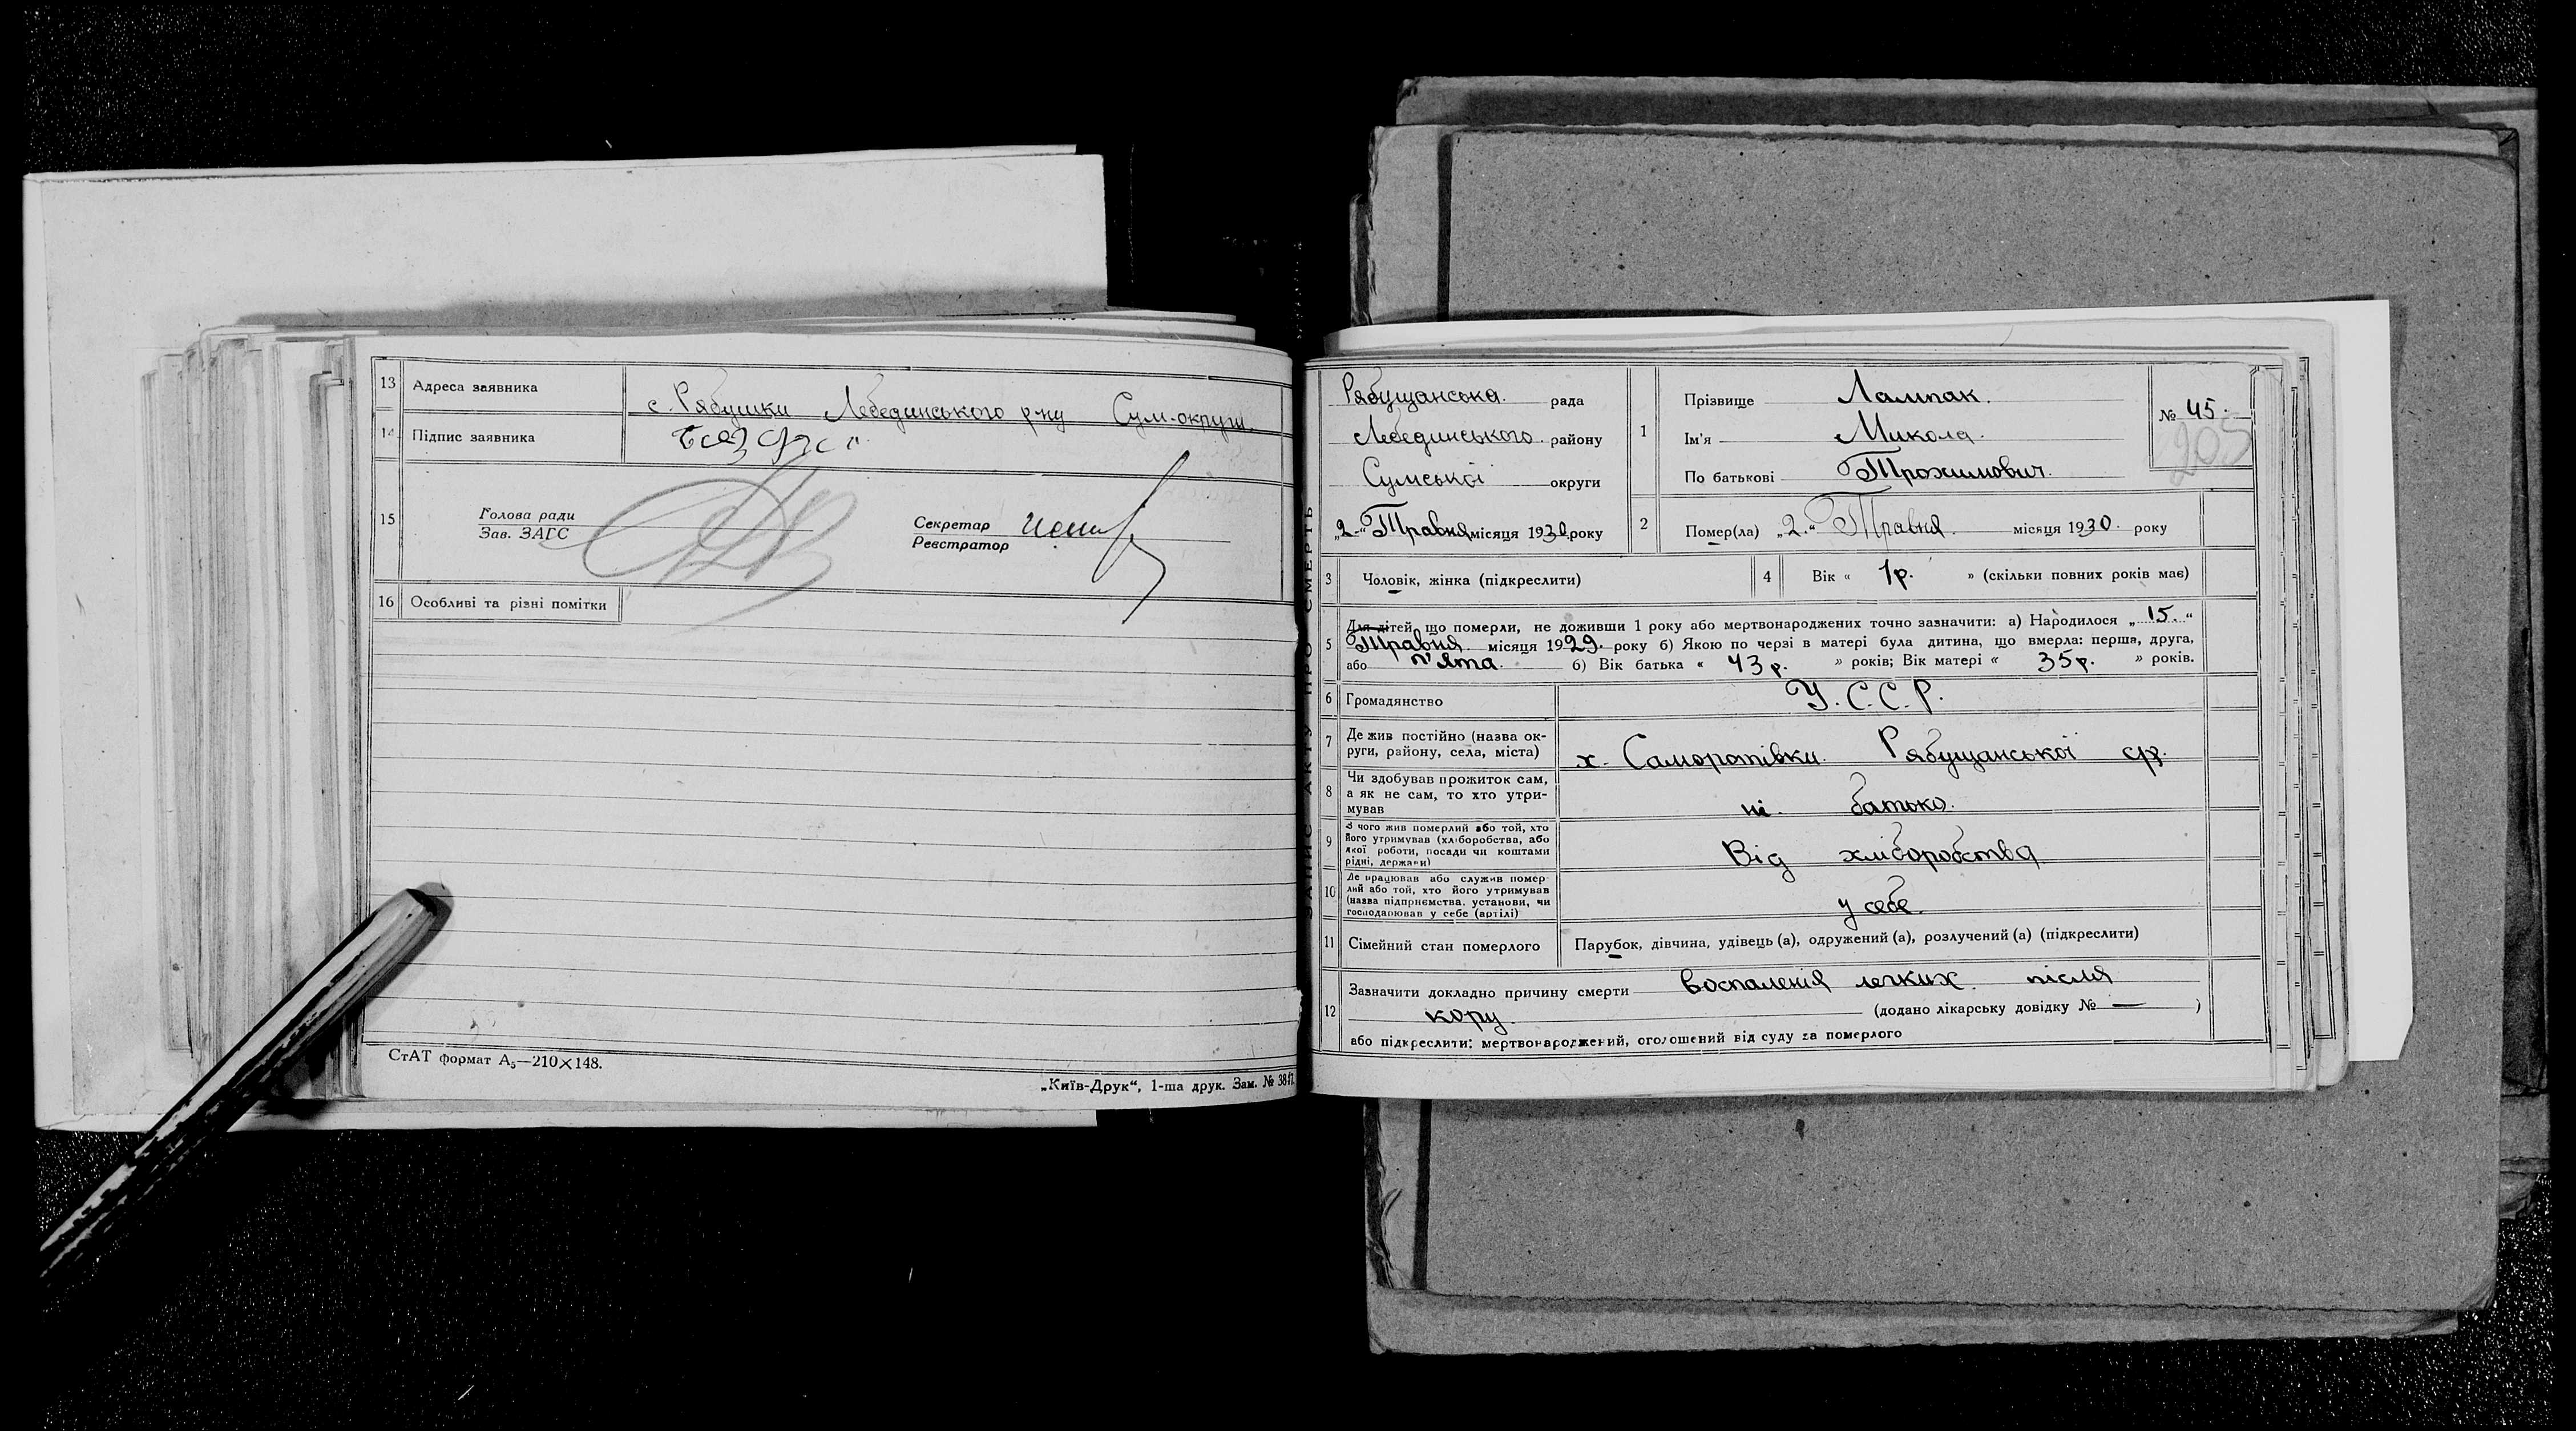 13 Адреса заявника с. Рябушки Лебединського р-ну Сум-округи.
14 Підпис заявника
15 Голова ради
Зав. ЗАГС
Секретар
Реєстратор
16 Особливі та різні помітки
СтАТ формат А5—210×148.
„Київ-Друк“, 1-ша друк. Зам. №
ЗАПИС АКТУ ПРО СМЕРТЬ
Рябущанська. рада
Лебединського. району
Сумської округи
„2“ Травня місяця 1930 року
1 Прізвище Лампак.
Ім'я Микола.
По батькові Трохимович.
№ 45.
205
2 Помер(ла) „2.“ Травня. місяця 1930. року
3 Чоловік, жінка (підкреслити)
4 Вік « 1р. » (скільки повних років має)
5 Для дітей, що померли, не доживши 1 року або мертвонароджених точно зазначити: а) Народилося „15.“
Травня. місяця 1929. року б) Якою по черзі в матері була дитина, що вмерла: перша, друга,
або п'ята. б) Вік батька « 43 р. » років; Вік матері « 35р. » років.
6 Громадянство У.С.С.Р.
7 Де жив постійно (назва ок-
руги, району, села, міста) х. Саморотівки. Рябущанської ср.
8 Чи здобував прожиток сам,
а як не сам, то хто утри-
мував ні. батько.
9 З чого жив померлий або той, хто
його утримував (хліборобства, або
якої роботи, посади чи коштами
рідні, держави) Від хліборобства
10 Де працював або служив помер
лий або той, хто його утримував
(назва підприємства, установи, чи
господарював у себе (артілі) у себе.
11 Сімейний стан померлого Парубок, дівчина, удівець (а), одружений (а), розлучений (а) (підкреслити)
12 Зазначити докладно причину смерти воспаленія легких. після
кору. (додано лікарську довідку № — )
або підкреслити: мертвонароджений, оголошений від суду за померлого